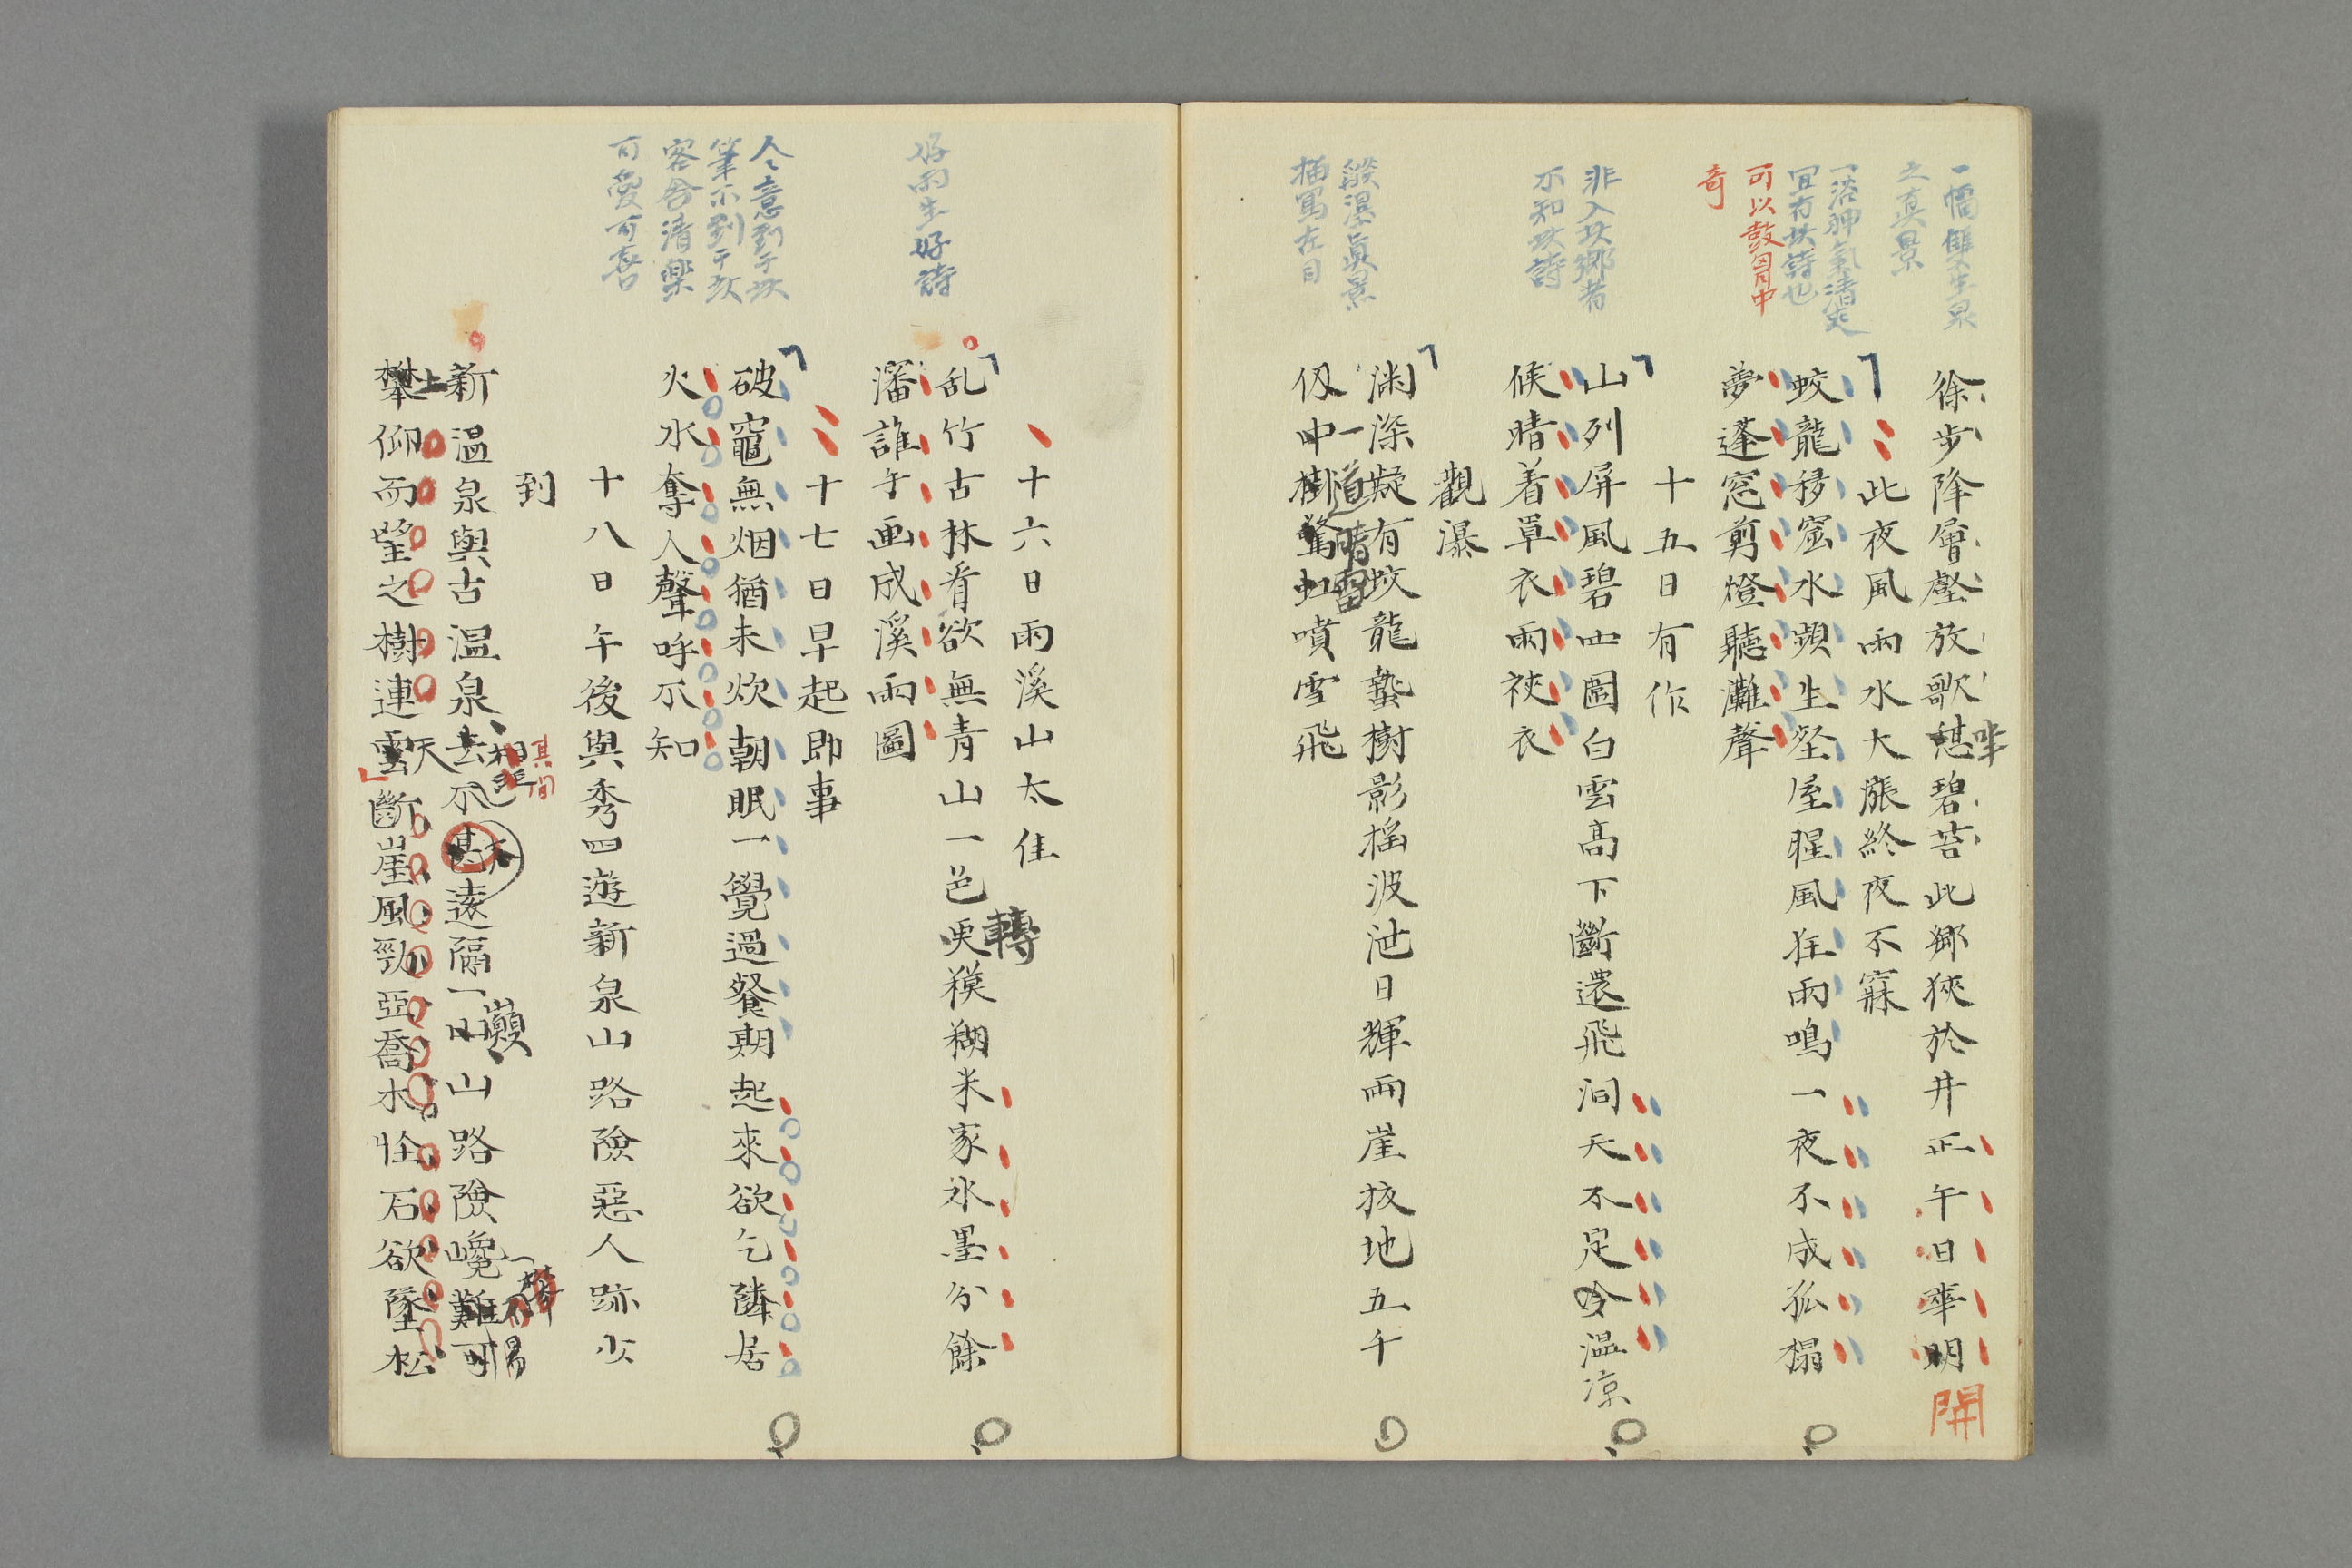 一幅雙生泉
之真景
一浴神氣清爽
宜有此詩也
可以鼓胸中
奇
非入此鄉者
不知此詩
縱瀑真景
描寫在目
徐步降層壑放歌碧苔此鄉狹於井正午日華明
坐
開
此夜風雨水大漲終夜不寐
蛟龍移窟水蘋生壑屋腥風狂雨鳴一夜不成孤榻
夢蓬窓剪燈聽灘聲
十五日有作
山列屏風碧四圍白雲高下斷還飛洞天不足令温凉
候晴着單衣雨裌衣
觀瀑
渊深凝有蛟龍蟄樹影榣波泄日輝兩崖拔地五千
仭中樹驚虹噴雪飛
一道晴雷
好雨生好詩
人々意到于此
筆不到于此
容舎清樂
可愛可喜
十六日雨溪山太佳
乱竹古林看欲無青山一色更糢糊米家水墨分餘
轉
瀋誰于画成溪雨圖
十七日早起即事
破竈無烟猶未炊朝眠一覺過餐期起來欲乞隣居
火水奪人聲呼不知
十八日午後與秀四遊新泉山路險惡人跡少
到
新温泉與古温泉去不甚遠隔一山路險巉難可
相距
其間
巓
不易
攀仰而望之樹連雲斷崖風勁亞喬木怪石欲墜松
上
天